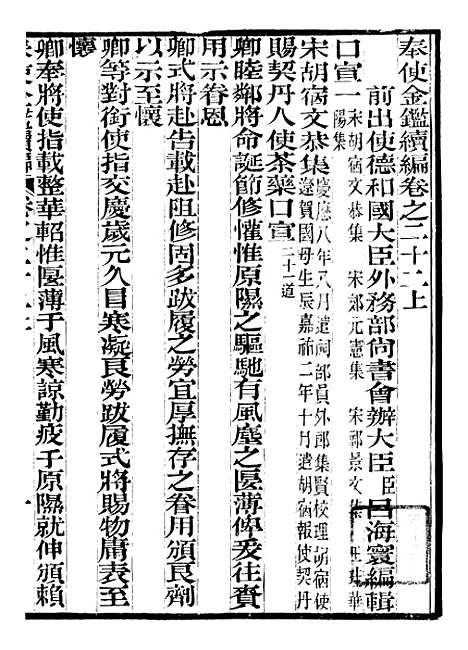 奉使金鑑續編卷之二十二上
前出使德和國大臣外務部尙書會辦大臣臣呂海寰編輯
口宣一 宋胡宿文恭集 宋郊元憲集 宋祁景文集 王珪華
陽集
宋胡宿文恭集 慶應八年八月遣祠部員外郎集賢校理胡宿使
遼賀國母生辰嘉祐二年十月遣胡宿報使契丹
賜契丹人使茶藥口宣 二十一道
卿睦鄰將命誕節修懽惟原隰之驅馳有風塵之匽薄俾爰往賚
用示眷恩
卿式將赴告載赴阻修固多跋履之勞宜厚撫存之眷用頒良劑
以示至懷
卿等對銜使指交慶歲元久目寒凝良勞跋履式將賜物庸表至
懷
卿奉將使指載整華軺惟匽薄于風寒諒勤疲于原隰就伸頒賴